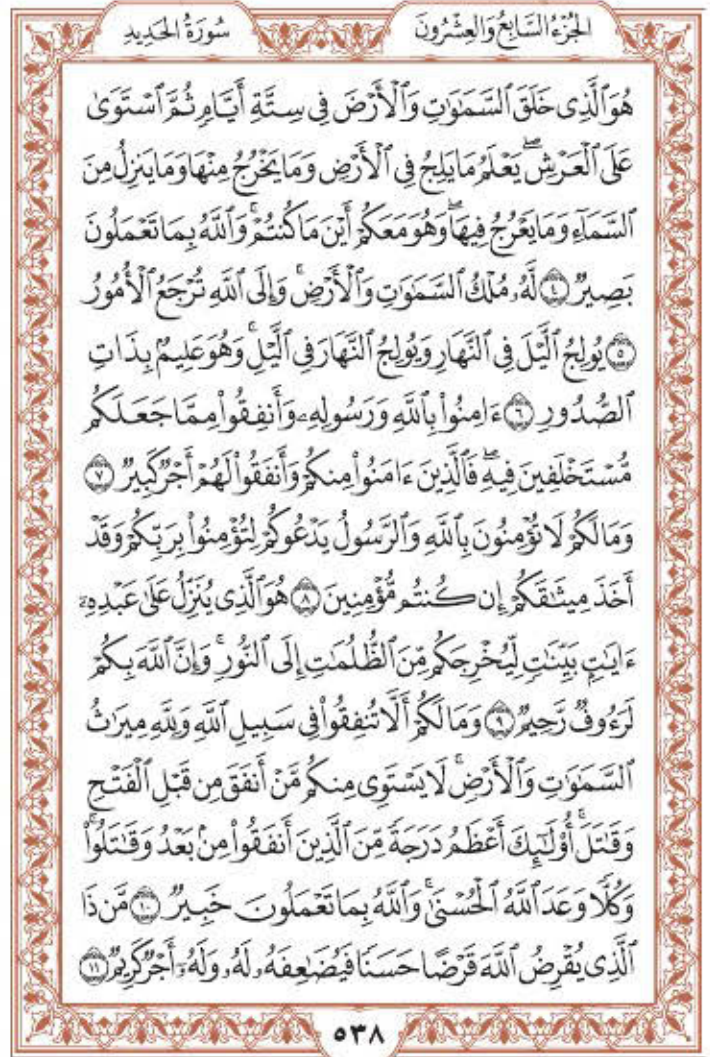 الجُزْءُ السَّابِعُ وَالعِشْرُونَ سُورَةُ الحَدِيدِ
هُوَ ٱلَّذِى خَلَقَ ٱلسَّمَٰوَٰتِ وَٱلْأَرْضَ فِى سِتَّةِ أَيَّامٍ ثُمَّ ٱسْتَوَىٰ
عَلَى ٱلْعَرْشِۖ يَعْلَمُ مَا يَلِجُ فِى ٱلْأَرْضِ وَمَا يَخْرُجُ مِنْهَا وَمَا يَنزِلُ مِنَ
ٱلسَّمَآءِ وَمَا يَعْرُجُ فِيهَاۖ وَهُوَ مَعَكُمْ أَيْنَ مَا كُنتُمْۚ وَٱللَّهُ بِمَا تَعْمَلُونَ
بَصِيرٌ ٤ لَّهُۥ مُلْكُ ٱلسَّمَٰوَٰتِ وَٱلْأَرْضِۚ وَإِلَى ٱللَّهِ تُرْجَعُ ٱلْأُمُورُ
٥ يُولِجُ ٱلَّيْلَ فِى ٱلنَّهَارِ وَيُولِجُ ٱلنَّهَارَ فِى ٱلَّيْلِۚ وَهُوَ عَلِيمٌۢ بِذَاتِ
ٱلصُّدُورِ ٦ ءَامِنُوا۟ بِٱللَّهِ وَرَسُولِهِۦ وَأَنفِقُوا۟ مِمَّا جَعَلَكُم
مُّسْتَخْلَفِينَ فِيهِۖ فَٱلَّذِينَ ءَامَنُوا۟ مِنكُمْ وَأَنفَقُوا۟ لَهُمْ أَجْرٌ كَبِيرٌ ٧
وَمَا لَكُمْ لَا تُؤْمِنُونَ بِٱللَّهِ وَٱلرَّسُولُ يَدْعُوكُمْ لِتُؤْمِنُوا۟ بِرَبِّكُمْ وَقَدْ
أَخَذَ مِيثَٰقَكُمْ إِن كُنتُم مُّؤْمِنِينَ ٨ هُوَ ٱلَّذِى يُنَزِّلُ عَلَىٰ عَبْدِهِۦٓ
ءَايَٰتٍۭ بَيِّنَٰتٍ لِّيُخْرِجَكُم مِّنَ ٱلظُّلُمَٰتِ إِلَى ٱلنُّورِۚ وَإِنَّ ٱللَّهَ بِكُمْ
لَرَءُوفٌ رَّحِيمٌ ٩ وَمَا لَكُمْ أَلَّا تُنفِقُوا۟ فِى سَبِيلِ ٱللَّهِ وَلِلَّهِ مِيرَٰثُ
ٱلسَّمَٰوَٰتِ وَٱلْأَرْضِۚ لَا يَسْتَوِى مِنكُم مَّنْ أَنفَقَ مِن قَبْلِ ٱلْفَتْحِ
وَقَٰتَلَۚ أُو۟لَٰٓئِكَ أَعْظَمُ دَرَجَةً مِّنَ ٱلَّذِينَ أَنفَقُوا۟ مِنۢ بَعْدُ وَقَٰتَلُوا۟ۚ
وَكُلًّا وَعَدَ ٱللَّهُ ٱلْحُسْنَىٰۚ وَٱللَّهُ بِمَا تَعْمَلُونَ خَبِيرٌ ١٠ مَّن ذَا
ٱلَّذِى يُقْرِضُ ٱللَّهَ قَرْضًا حَسَنًا فَيُضَٰعِفَهُۥ لَهُۥ وَلَهُۥٓ أَجْرٌ كَرِيمٌ ١١
٥٣٨